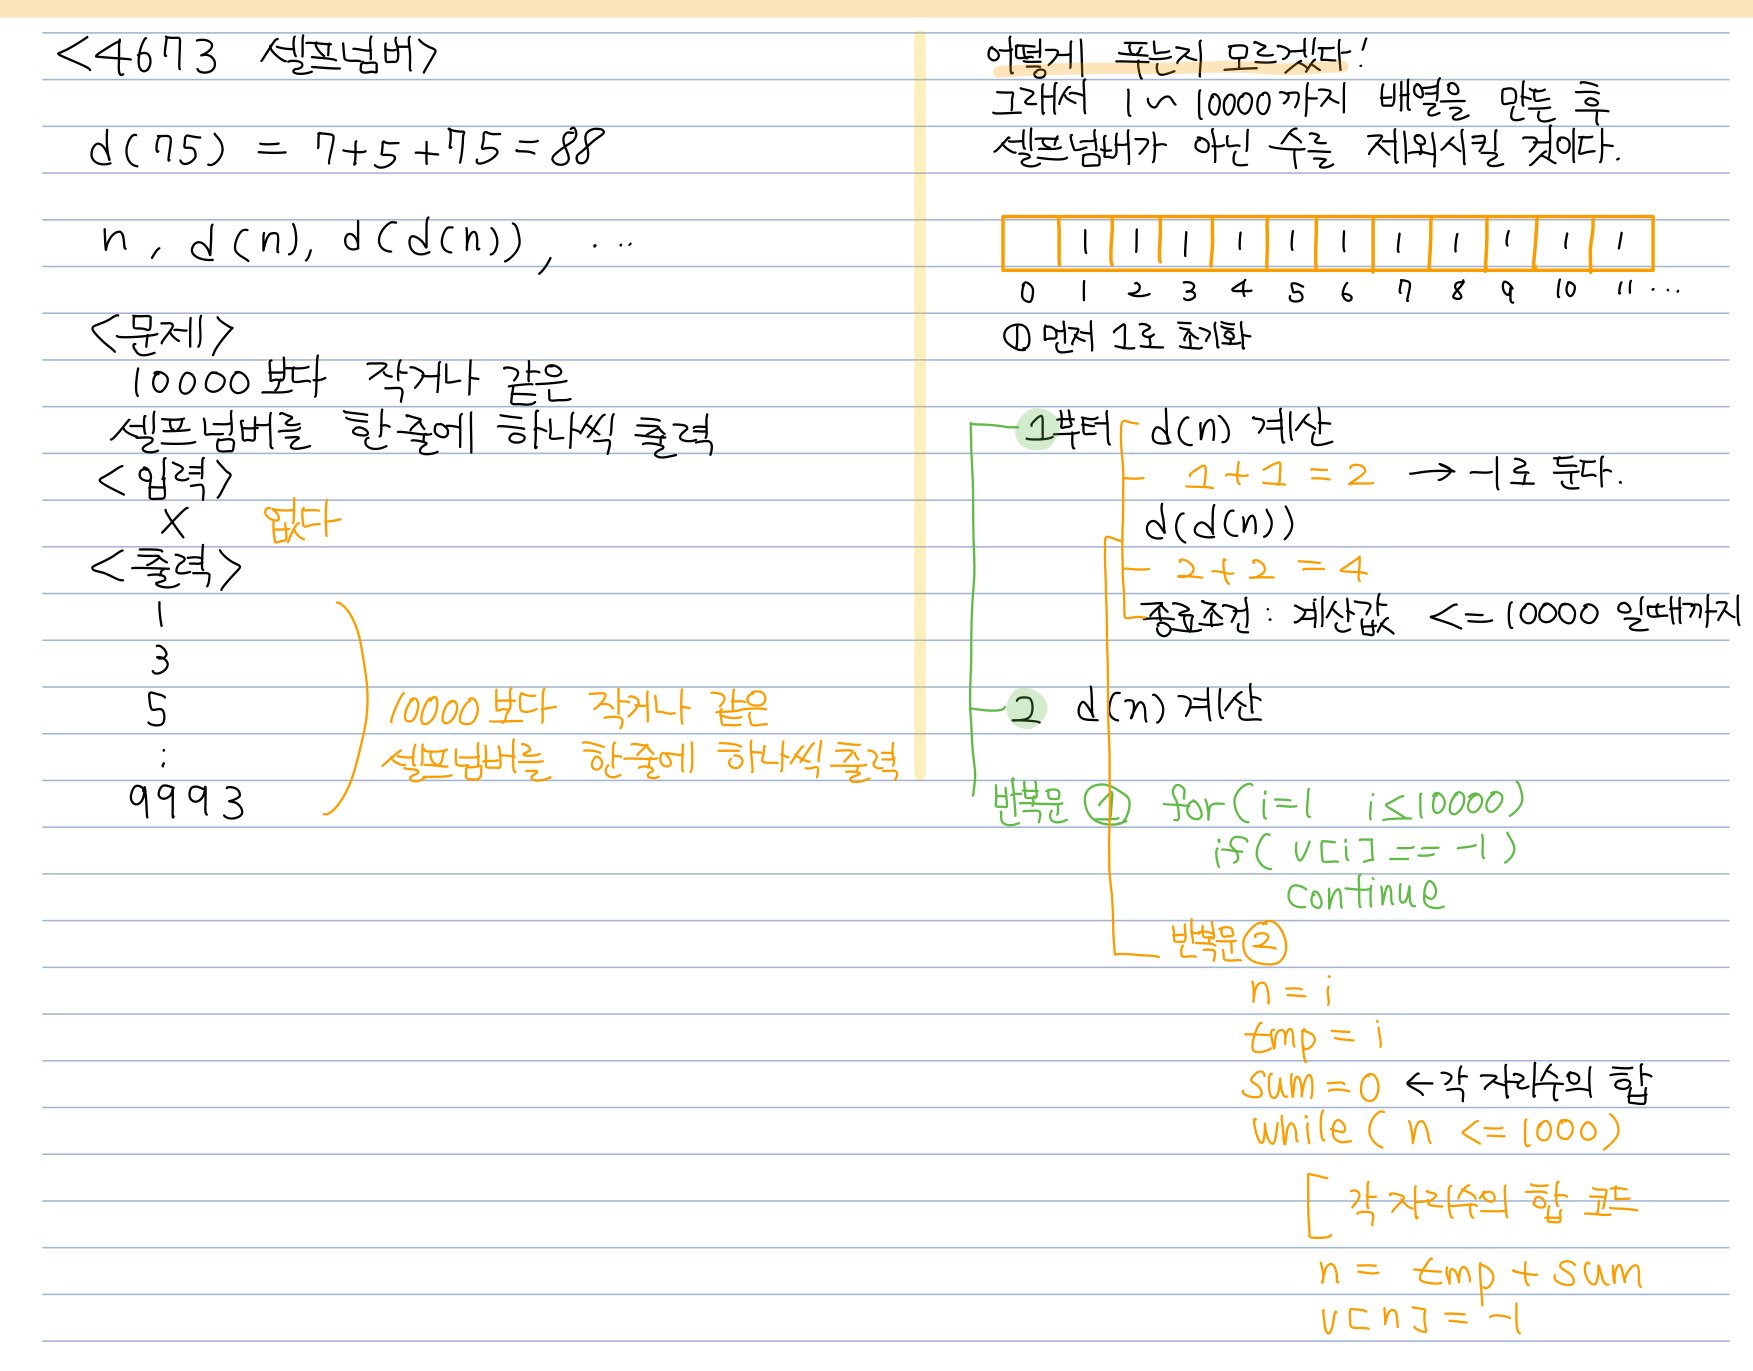 <4673 셀프넘버>
d(75) = 7+5+75=88
n, d(n), d(d(n)), ...
<문제>
10000보다 작거나 같은
셀프넘버를 한줄에 하나씩 출력
<입력>
X 없다
<출력>
1
3
5
:
9993
10000보다 작거나 같은
셀프넘버를 한줄에 하나씩 출력
어떻게 푸는지 모르겠다!
그래서 1~10000까지 배열을 만든 후
셀프넘버가 아닌 수를 제외시킬 것이다.
1 1 1 1 1 1 1 1 1 1 1
0 1 2 3 4 5 6 7 8 9 10 11 ...
① 먼저 1로 초기화
1부터 d(n) 계산
1+1=2 → -1로 둔다.
d(d(n))
2+2=4
종료조건: 계산값 <=10000 일때까지
2 d(n) 계산
반복문 ① for(i=1 i≤10000)
if( v[i] == -1)
continue
반복문②
n = i
tmp = i
sum=0 ←각 자리수의 합
while( n <=1000)
[ 각 자리수의 합 코드
n = tmp + sum
v[n] = -1